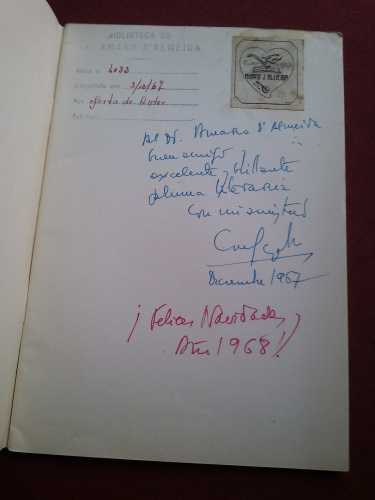 BIBLIOTECA DO
AMARO D'ALMEIDA
4033
Adquirido em 3/12/67
Por oferta do Autor
AMARO J. ALMEIDA
Al Dr. Amaro d'Almeida
buen amigo y
excelente y brillante
pluma literaria
Con mi amistad
Diciembre 1967
¡Felices Navidades y
Año 1968!!